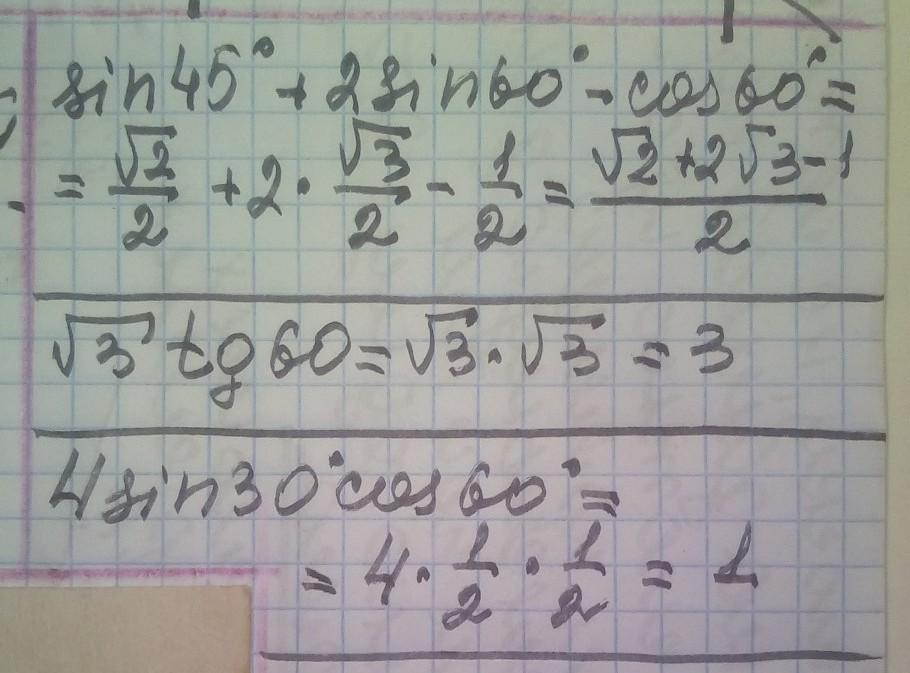 sin45° + 2sin60° - cos60° =
= √2/2 + 2 · √3/2 - 1/2 = (√2 + 2√3 - 1)/2
√3 tg60 = √3 · √3 = 3
4sin30°cos60° =
= 4 · 1/2 · 1/2 = 1